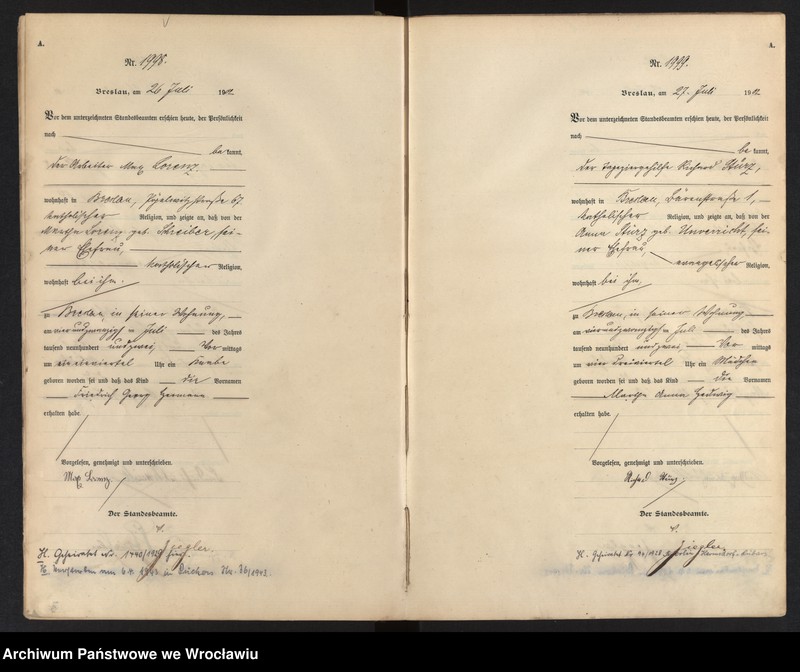 A.
Nr. 1998.
Breslau, am 26 Juli 1902
Vor dem unterzeichneten Standesbeamten erschien heute, der Persönlichkeit
nach
be kannt,
der Arbeiter Max Lorenz,
wohnhaft in Breslau, 67,
katholischer Religion, und zeigte an, daß von der
Martha Lorenz geb. Schreiber, sei-
ner Ehefrau,
katholischen Religion,
wohnhaft bei ihm,
zu Breslau, in seiner Wohnung,
am vierundzwanzigsten Juli des Jahres
tausend neunhundert und zwei, Vor mittags
um Uhr ein Knabe
geboren worden sei und daß das Kind die Vornamen
Friedrich Georg Hermann
erhalten habe.
Vorgelesen, genehmigt und unterschrieben.
Max Lorenz.
Der Standesbeamte.
Ziegler.
H. Geheiratet Nr. 1940/1929
verstorben am 6.4. 1943 in Nr. 36/1943.
A.
Nr. 1999.
Breslau, am 27. Juli 1902
Vor dem unterzeichneten Standesbeamten erschien heute, der Persönlichkeit
nach
be kannt,
der Tapeziergehilfe Richard Sturz,
wohnhaft in Breslau, Bärenstraße 1,
katholischer Religion, und zeigte an, daß von der
Anna Sturz geb. Unverricht, sei-
ner Ehefrau,
evangelischer Religion,
wohnhaft bei ihm,
zu Breslau, in seiner Wohnung
am vierundzwanzigsten Juli des Jahres
tausend neunhundert und zwei, Vor mittags
um vier dreiviertel Uhr ein Mädchen
geboren worden sei und daß das Kind die Vornamen
Martha Anna Hedwig
erhalten habe.
Vorgelesen, genehmigt und unterschrieben.
Richard Sturz
Der Standesbeamte.
Ziegler
H. Geheiratet Nr.
Archiwum Państwowe we Wrocławiu